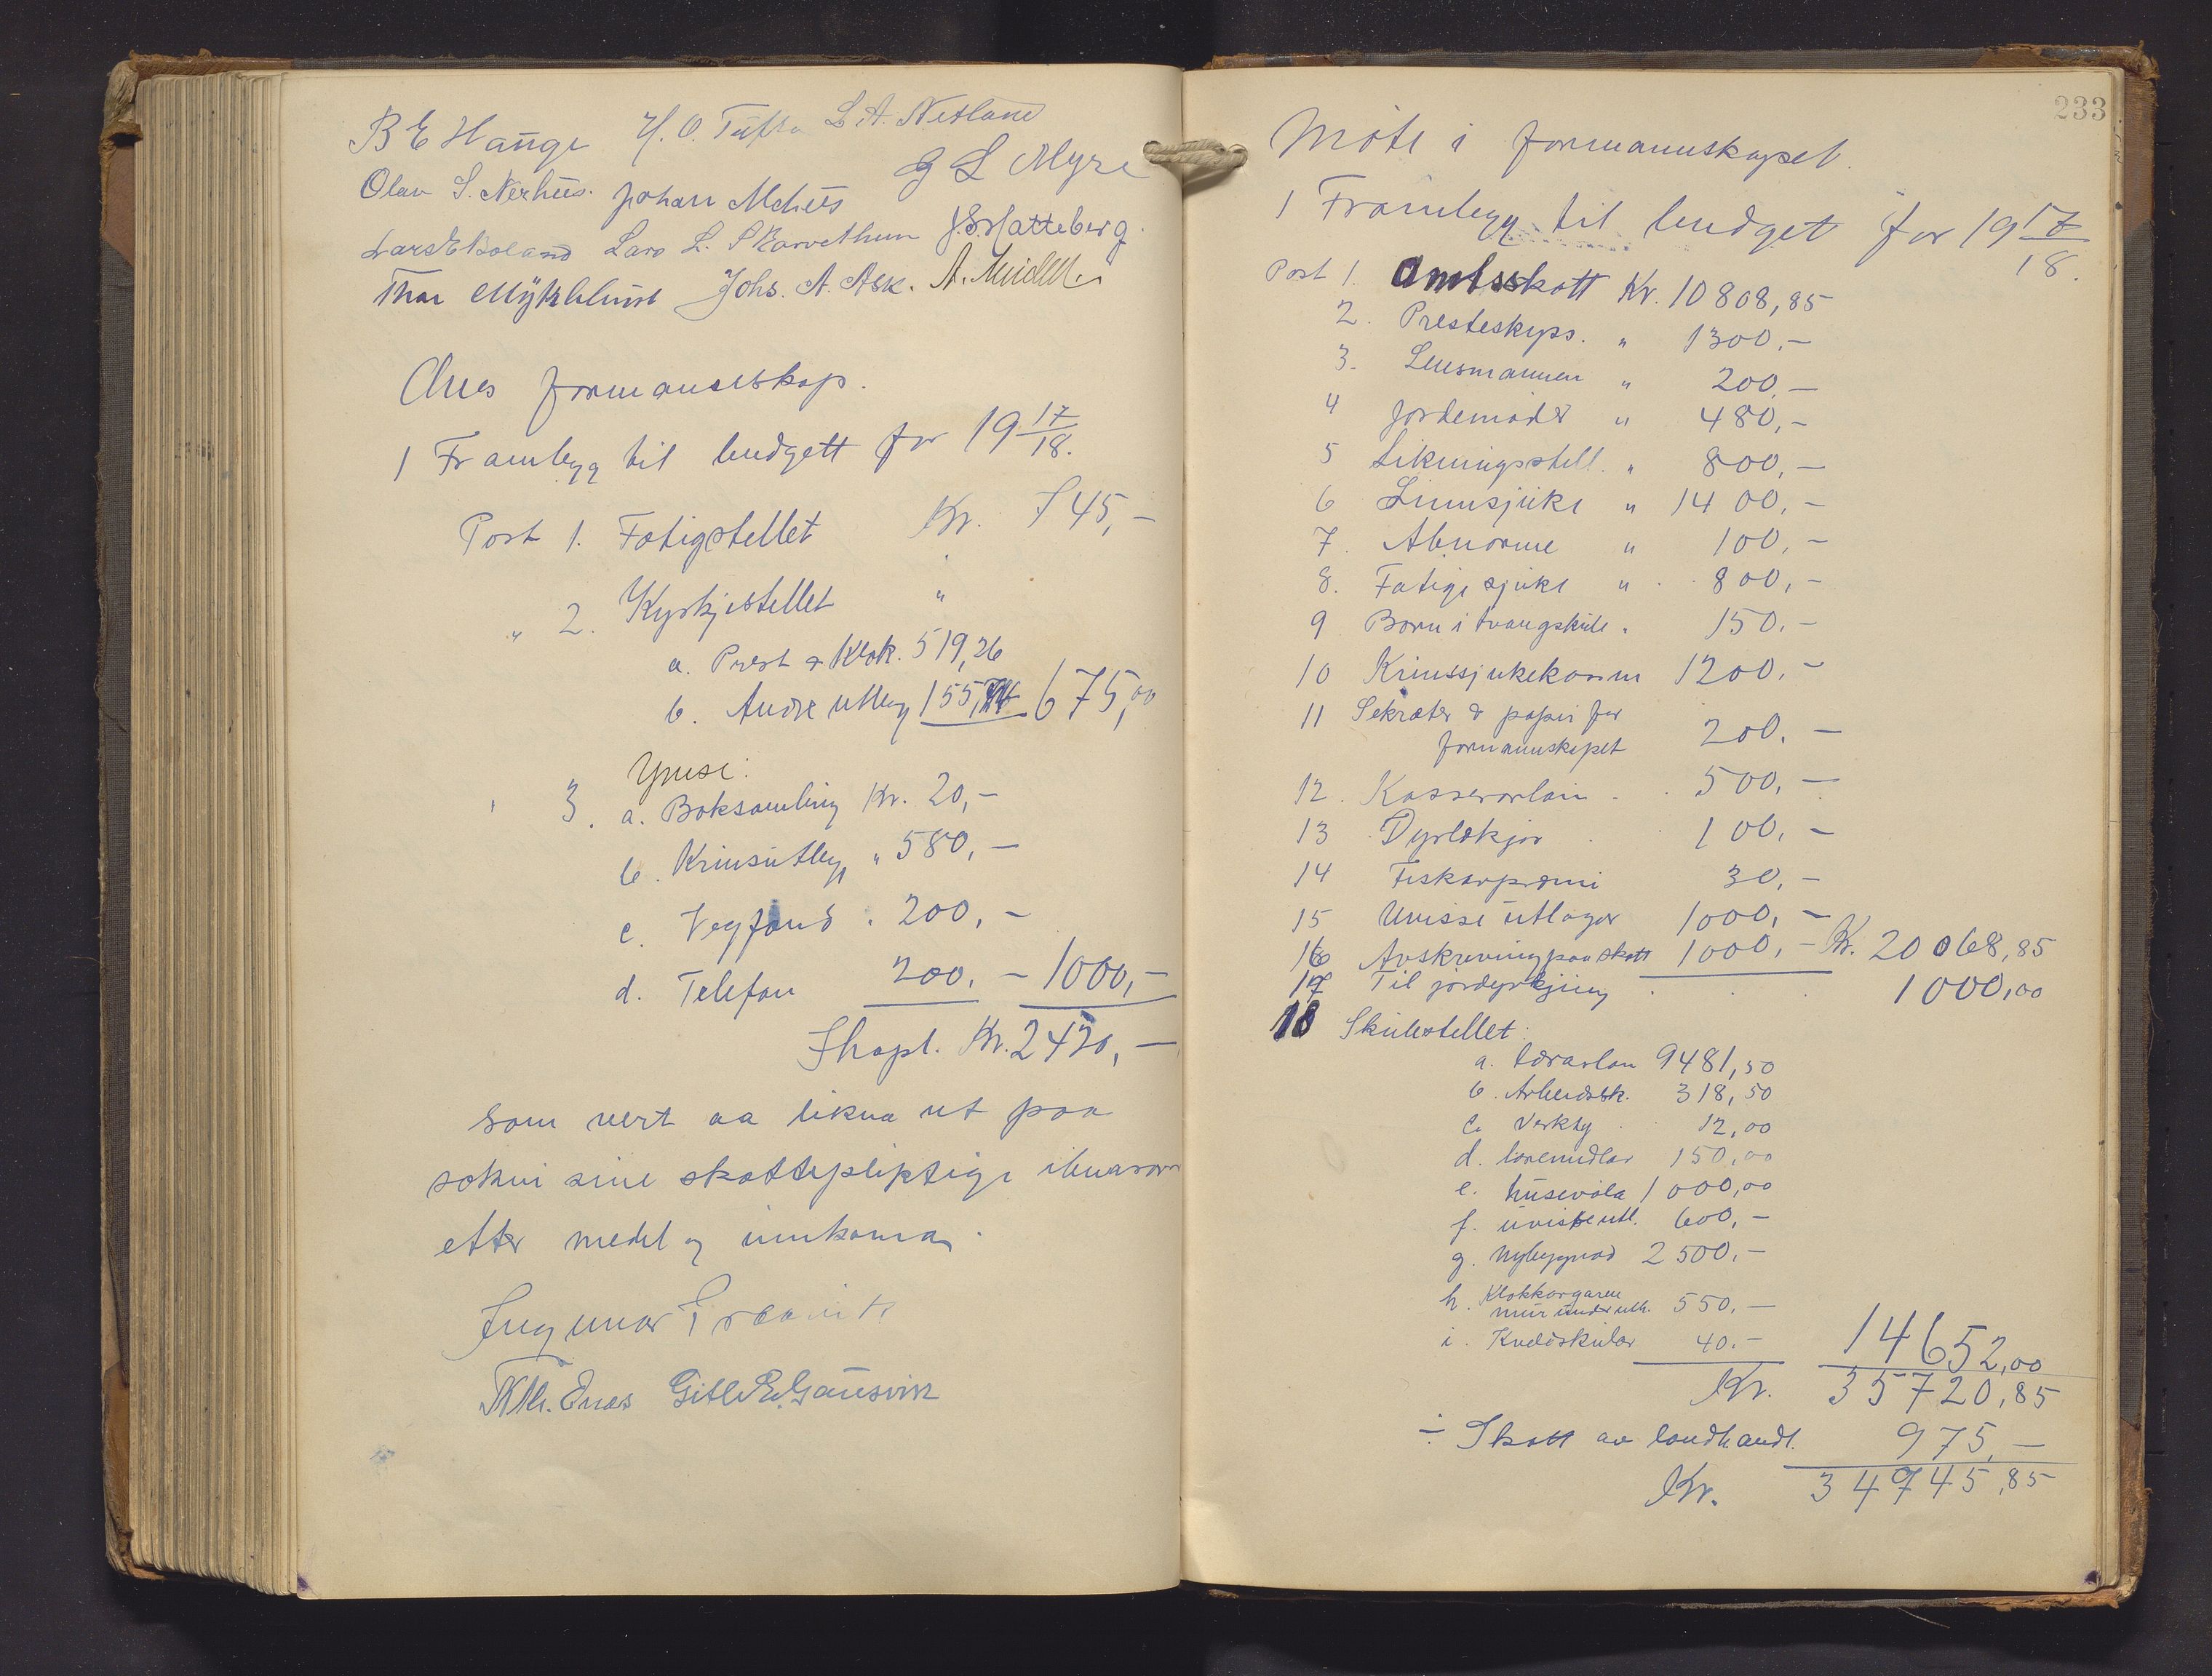 B E Hauge H. O. Tufta L. A. Netland
Olav S. Nerhus. Johan Mehus G L Myre
Lars E Koland Lars L. Skarvethun J. S. Hatteberg.
Thor Myklebust Johs. A. Ask. A.
Ænes formannskap.
1 Framlegg til budgett for 19 17/18.
Post 1. Fatigstellet Kr. 745,-
" 2. Kyrkjestellet "
a. Prest & Klok. 519,26
b. Andre utlegg 155,74 675,00
Ymse:
3. a. Boksamling Kr. 20,-
b. Krinsutlegg " 580,-
c. Vegfond " 200,-
d. Telefon 200,- 1000,-
Ihopl. Kr. 2420,-
som vert aa likna ut paa
sokni sine skattepliktige ibuarar
etter medel og innkoma.
Ingmar
Gitle E. Gausvik
233
Møte i formannskapet.
1 Framlegg til budget for 19 17/18.
Post 1. Amtsskatt Kr. 10808,85
2. Presteskyss. " 1300,-
3. Lensmannen " 200,-
4 Jordemoder " 480,-
5 Likningsstell. " 800,-
6 Sinnsjuke " 1400,-
7. Abnorme " 100,-
8. Fatige sjuke " 800,-
9 Born i tvangskule " 150,-
10 Krinssjukekassa 1200,-
11 Sekretær & papir for
formannskapet 200,-
12. Kasserarløn 500,-
13 Dyrlækjar 100,-
14 Fiskarpræmi 30,-
15 Uvisse utlagor 1000,-
16 Avskrivning paa skatt 1000,- Kr. 20068,85
17 Til jordyrkjing 1000,00
18 Skulestellet:
a. Lærarløn 9481,50
b. Arbeidssk. 318,50
c. Verkty 12,00
d. læremidlar 150,00
e. husevøla 1000,00
f. uvisse utl. 600,-
g. Nybyggnad 2500,-
h. Klokkargaren
mur under uth. 550,-
i. Kveldskular 40,- 14652,00
Kr. 35720,85
÷ Skatt av landhandl. 975,-
Kr. 34745,85